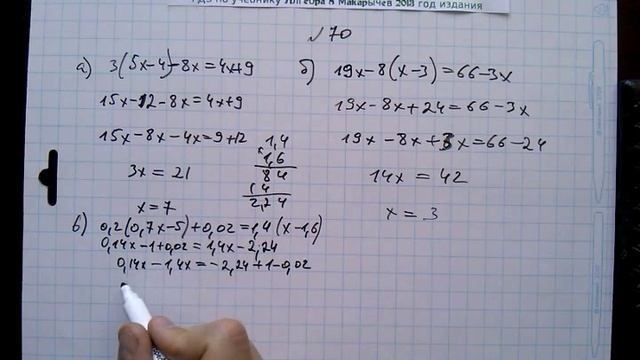 ГДЗ по учебнику Алгебра 8 Макарычев 2013 год издания
№70
а) 3(5x-4)-8x=4x+9
15x-12-8x=4x+9
15x-8x-4x=9+12
3x=21
x=7
1,4
× 1,6
84
14
2,24
б) 19x-8(x-3)=66-3x
19x-8x+24=66-3x
19x-8x+3x=66-24
14x=42
x=3
в) 0,2(0,7x-5)+0,02=1,4(x-1,6)
0,14x-1+0,02=1,4x-2,24
0,14x-1,4x=-2,24+1-0,02